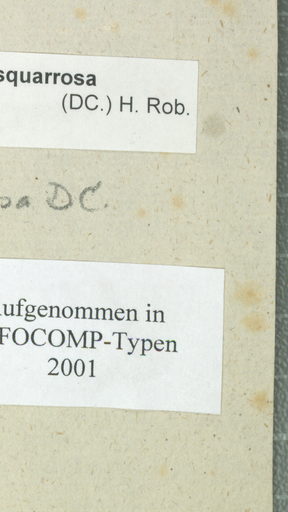 squarrosa
(DC.) H. Rob.
DC.
ufgenommen in
FOCOMP-Typen
2001